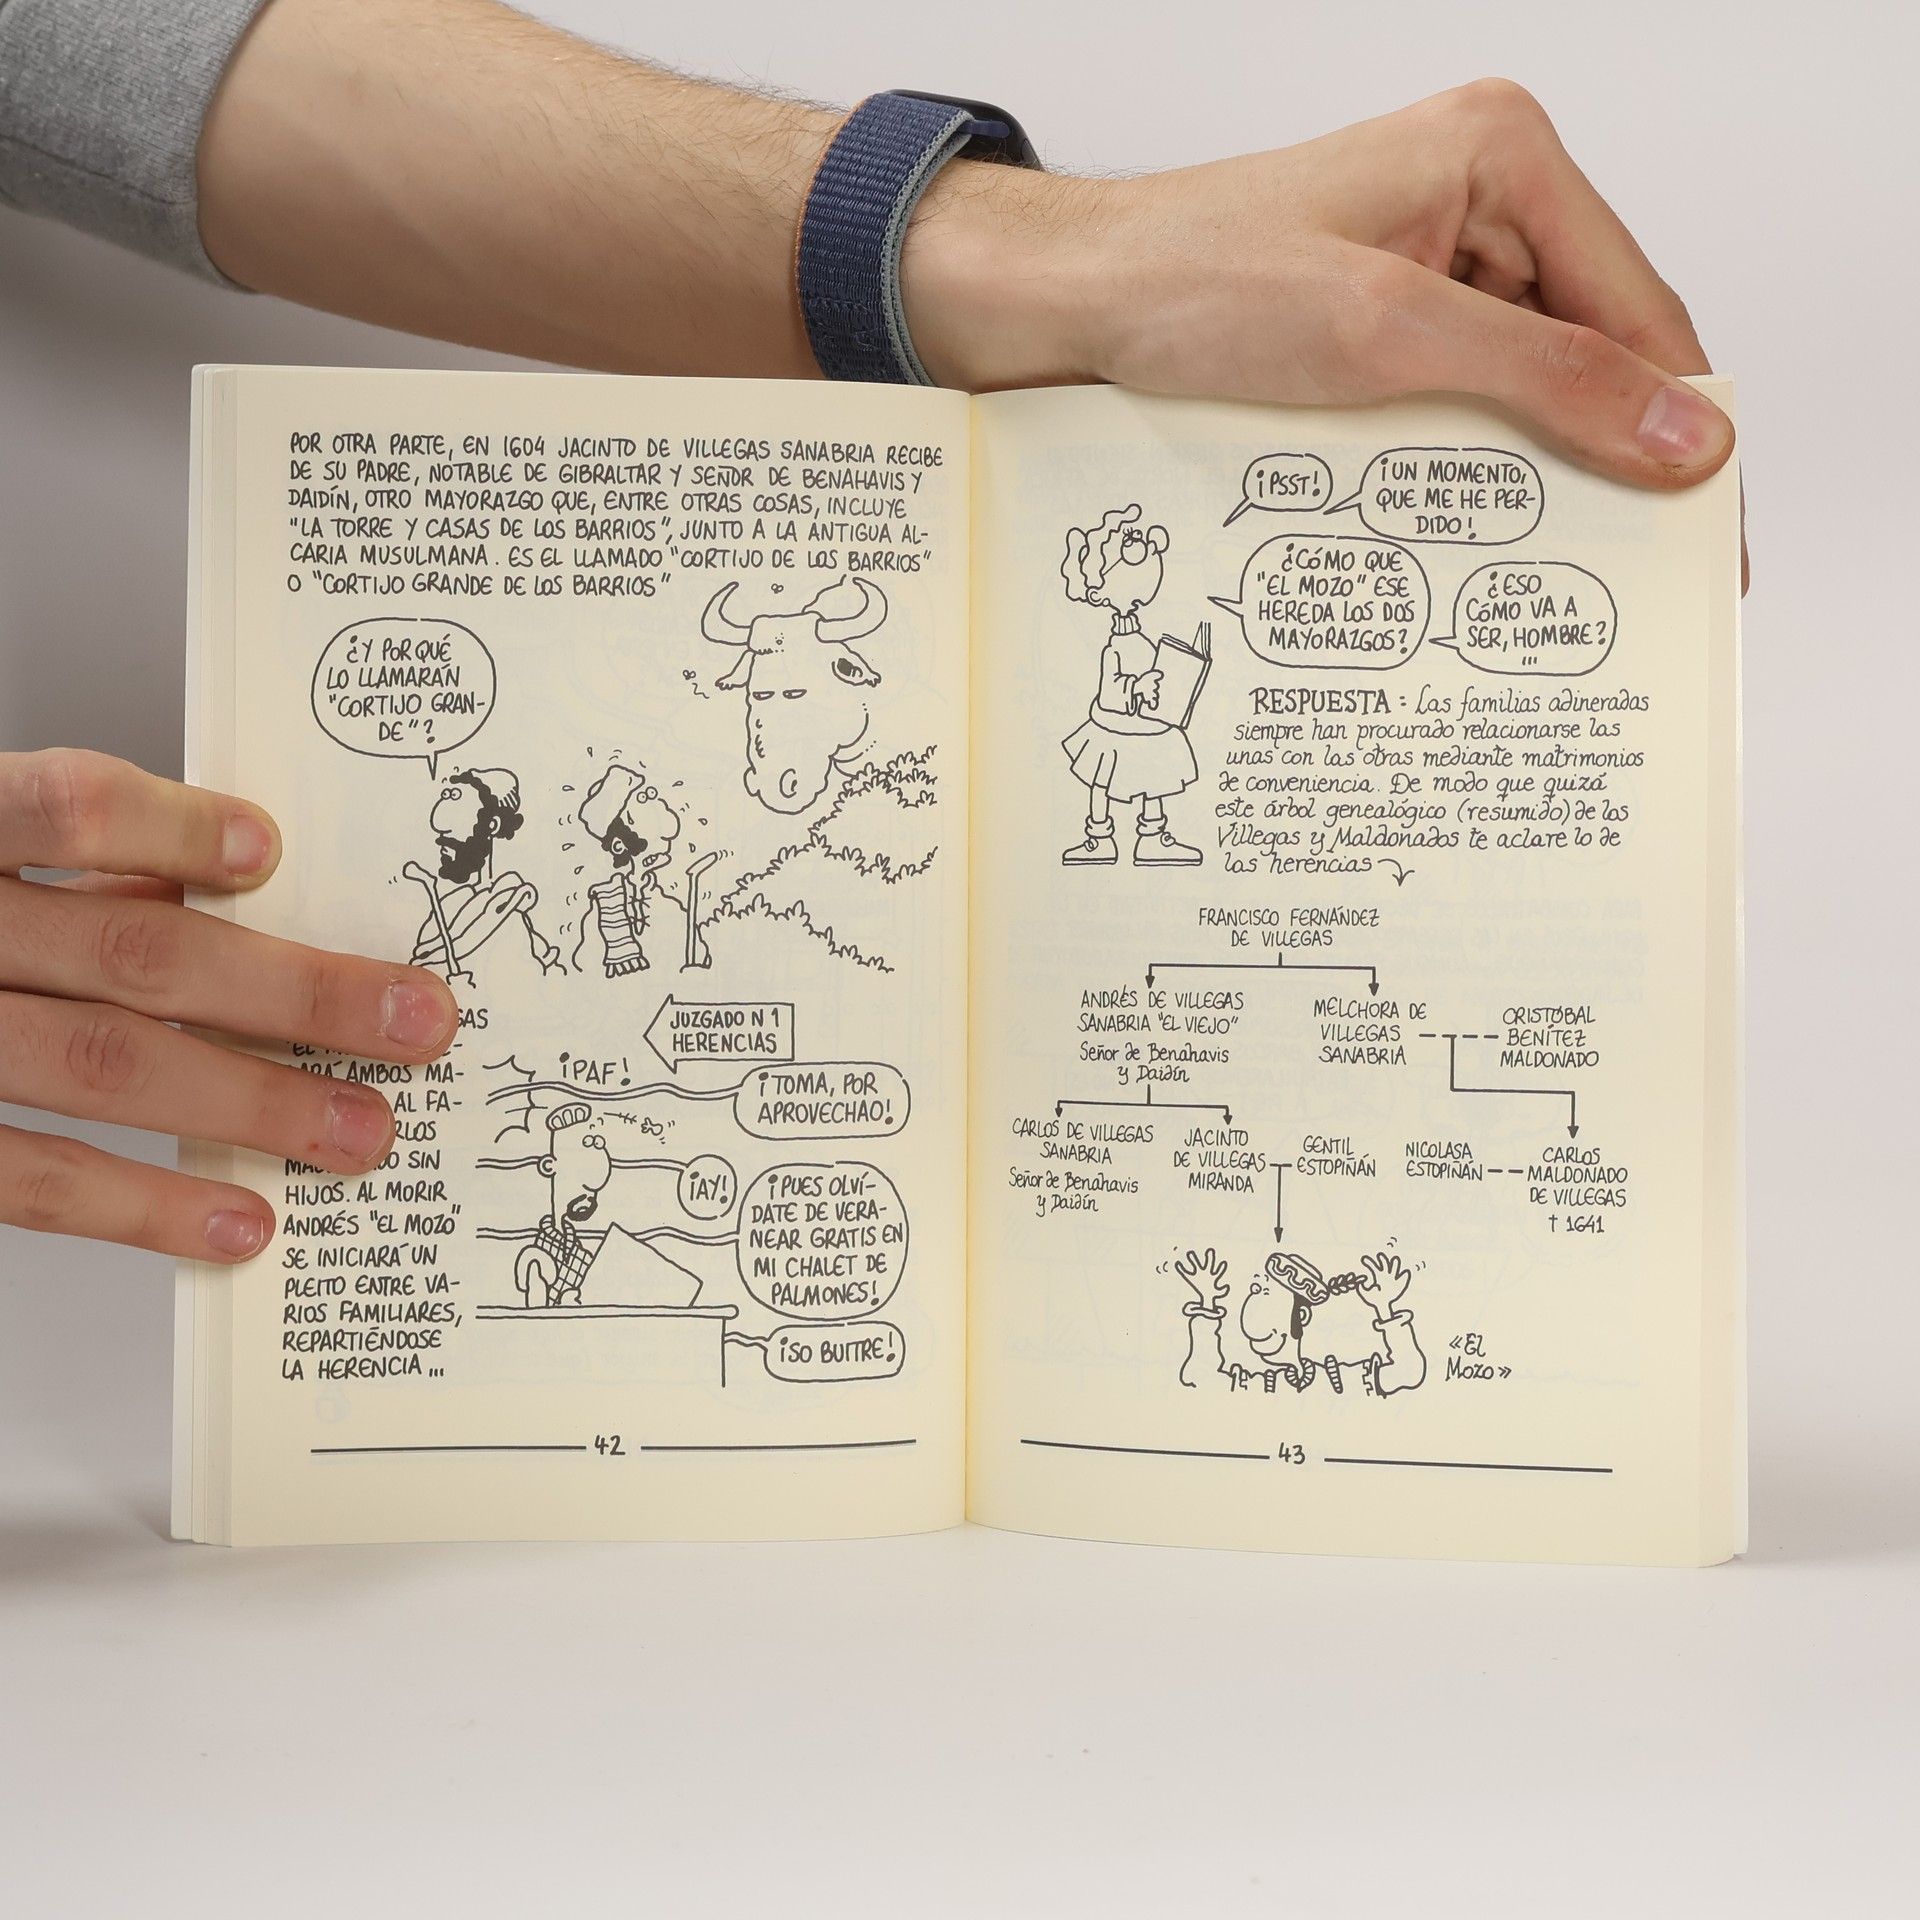 POR OTRA PARTE, EN 1604 JACINTO DE VILLEGAS SANABRIA RECIBE
DE SU PADRE, NOTABLE DE GIBRALTAR Y SEÑOR DE BENAHAVIS Y
DAIDÍN, OTRO MAYORAZGO QUE, ENTRE OTRAS COSAS, INCLUYE
"LA TORRE Y CASAS DE LOS BARRIOS", JUNTO A LA ANTIGUA AL-
CARIA MUSULMANA. ES EL LLAMADO "CORTIJO DE LOS BARRIOS"
O "CORTIJO GRANDE DE LOS BARRIOS"
¿Y POR QUÉ
LO LLAMARÁN
"CORTIJO GRAN-
DE"?
GAS
AMBOS MA-
AL FA-
RLOS
SIN
HIJOS. AL MORIR
ANDRÉS "EL MOZO"
SE INICIARÁ UN
PLEITO ENTRE VA-
RIOS FAMILIARES,
REPARTIÉNDOSE
LA HERENCIA...
JUZGADO N 1
HERENCIAS
¡PAF!
¡TOMA, POR
APROVECHAO!
¡AY!
¡PUES OLVÍ-
DATE DE VERA-
NEAR GRATIS EN
MI CHALET DE
PALMONES!
¡SO BUITRE!
42
¡PSST!
¡UN MOMENTO,
QUE ME HE PER-
DIDO!
¿CÓMO QUE
"EL MOZO" ESE
HEREDA LOS DOS
MAYORAZGOS?
¿ESO
CÓMO VA A
SER, HOMBRE?
...
RESPUESTA: Las familias adineradas
siempre han procurado relacionarse las
unas con las otras mediante matrimonios
de conveniencia. De modo que quizá
este árbol genealógico (resumido) de los
Villegas y Maldonados te aclare lo de
las herencias
FRANCISCO FERNÁNDEZ
DE VILLEGAS
ANDRÉS DE VILLEGAS
SANABRIA "EL VIEJO"
Señor de Benahavis
y Daidín
MELCHORA DE
VILLEGAS
SANABRIA
CRISTÓBAL
BENÍTEZ
MALDONADO
CARLOS DE VILLEGAS
SANABRIA
Señor de Benahavis
y Daidín
JACINTO
DE VILLEGAS
MIRANDA
GENTIL
ESTOPIÑÁN
NICOLASA
ESTOPIÑÁN
CARLOS
MALDONADO
DE VILLEGAS
† 1641
«El
Mozo»
43